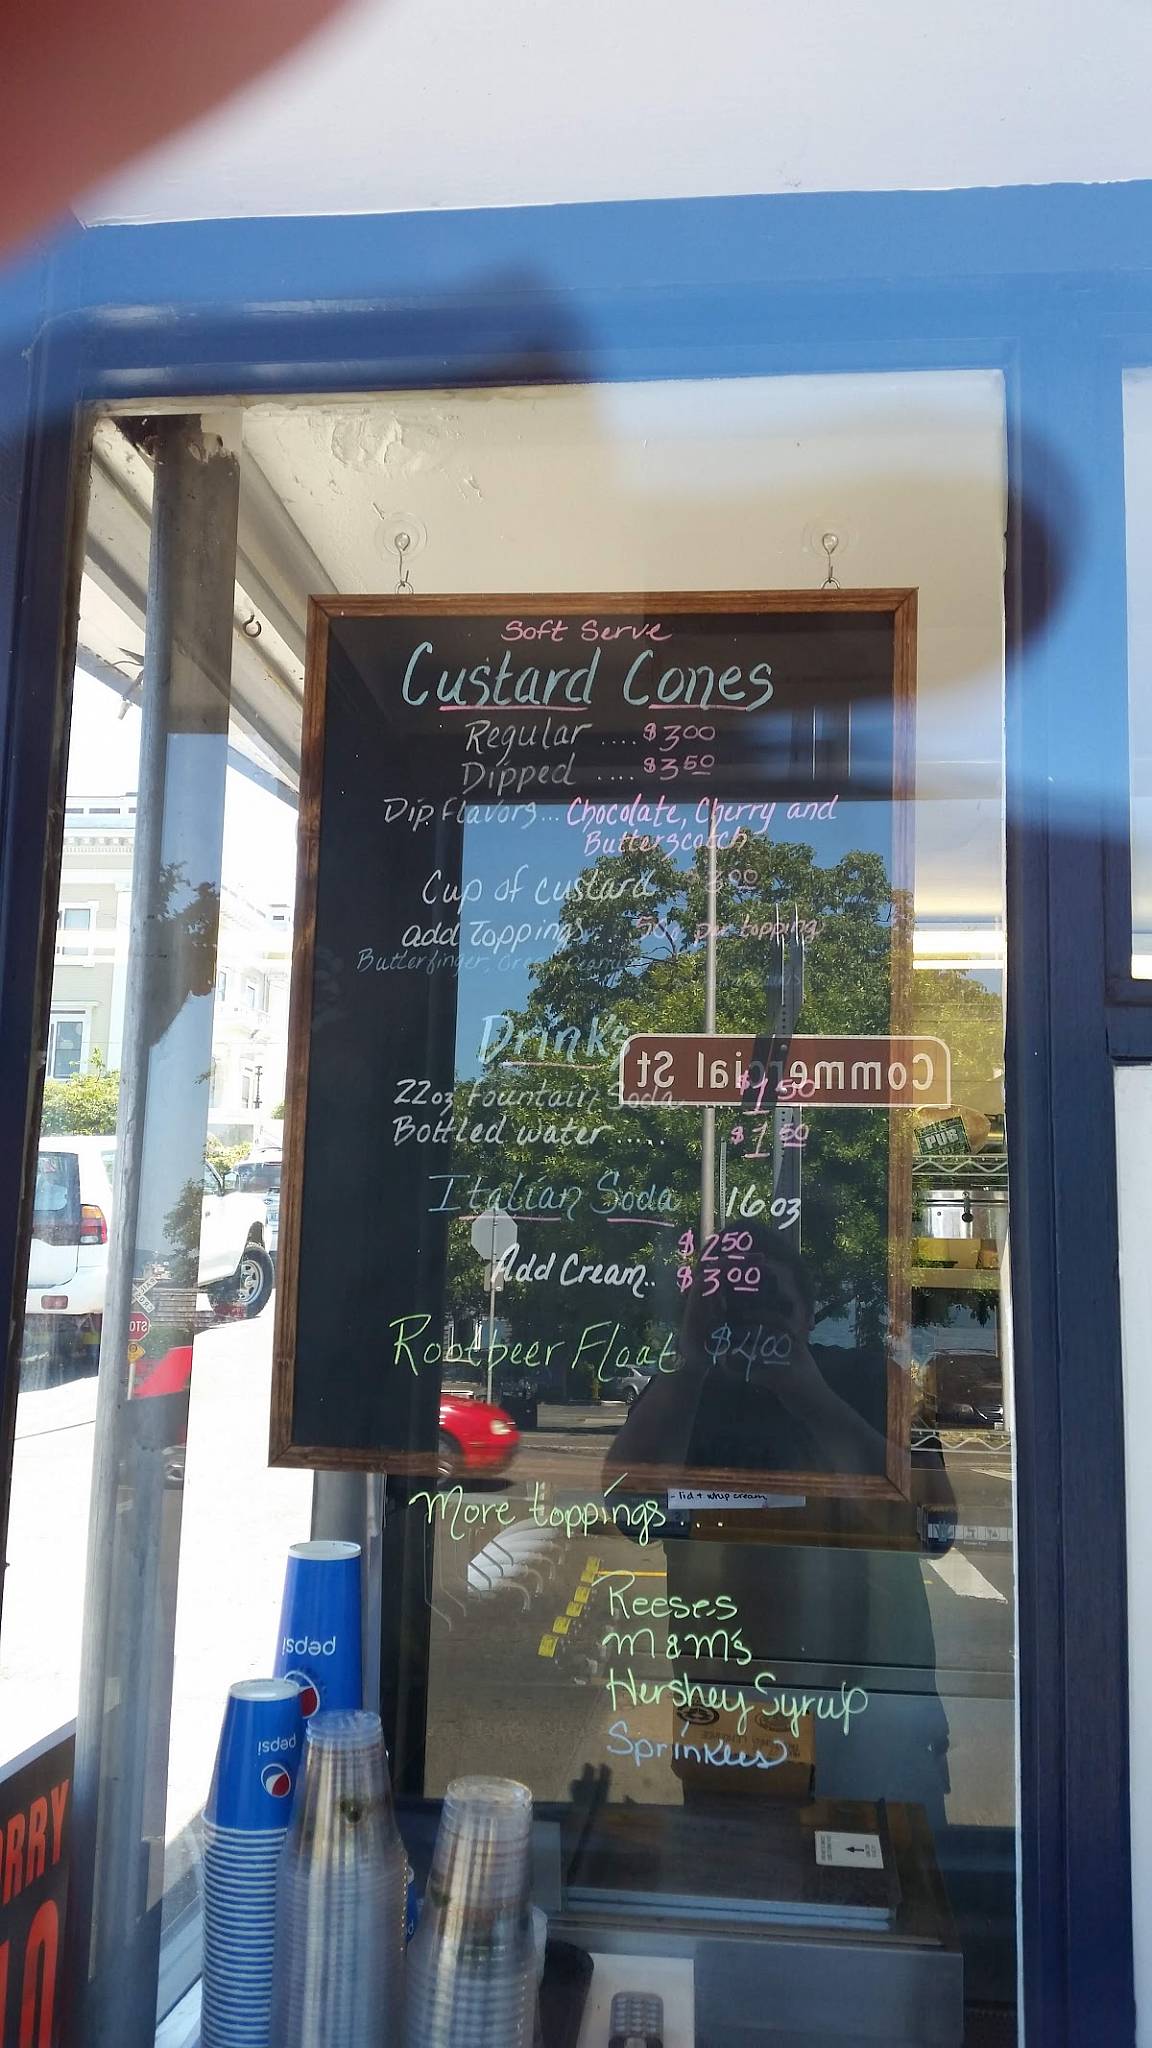 Soft Serve
Custard Cones
Regular .... $3.00
Dipped .... $3.50
Dip Flavors... Chocolate, Cherry and
Butterscotch
Cup of custard
add toppings... 50¢ per topping
Butterfinger, Oreo,
Drinks
22oz Fountain Soda $1.50
Bottled water ..... $1.50
Italian Soda 16oz
$2.50
Add Cream.. $3.00
Rootbeer Float $4.00
Commercial St
PUB
- lid + whip cream
More toppings...
Reeses
M&M's
Hershey Syrup
Sprinkles
pepsi
pepsi
STOP